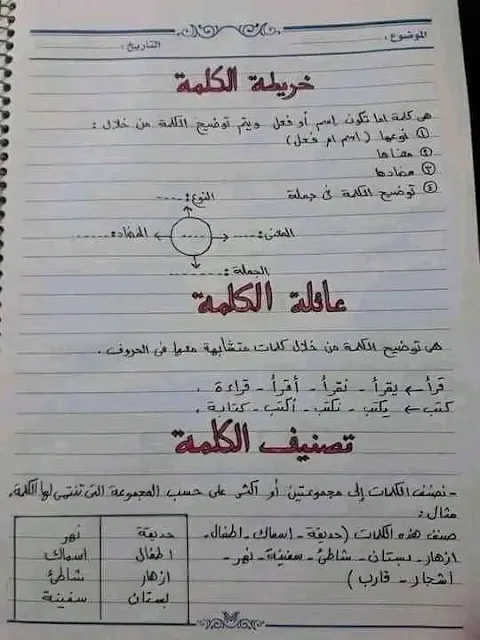 الموضوع :
التاريخ :
خريطة الكلمة
هى كلمة اما تكون اسم أو فعل ويتم توضيح الكلمة من خلال :
① نوعها ( اسم ام فعل)
② معناها
③ مضادها
④ توضيح الكلمة فى جملة
النوع: ----
المعنى: ----
----
المضاد: ----
الجملة : ----
عائلة الكلمة
هى توضيح الكلمة من خلال كلمات متشابهة معها فى الحروف .
قرأ ← يقرأ - نقرأ - أقرأ - قراءة .
كتب ← يكتب - نكتب - أكتب - كتابة .
تصنيف الكلمة
- نصنف الكلمات إلى مجموعتين أو أكثر على حسب المجموعة التى تنتمى لها الكلمة.
مثال :
صنف هذه الكلمات ( حديقة - اسماك - اطفال -
ازهار - بستان - شاطئ - سفينة - نهر -
اشجار - قارب )
حديقة نهر
اطفال اسماك
ازهار شاطئ
بستان سفينة